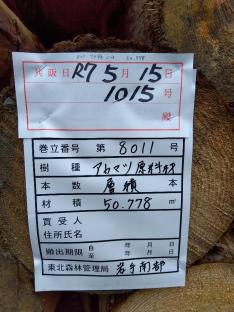 50.778
共販日 R7 5月15日
1015号
殿
巻立番号 第 8011 号
樹種 アカマツ原料材
本数 層積 本
材積 50.778 m³
買受人
住所氏名
搬出期限 自 年 月 日
至 年 月 日
東北森林管理局 岩手南部